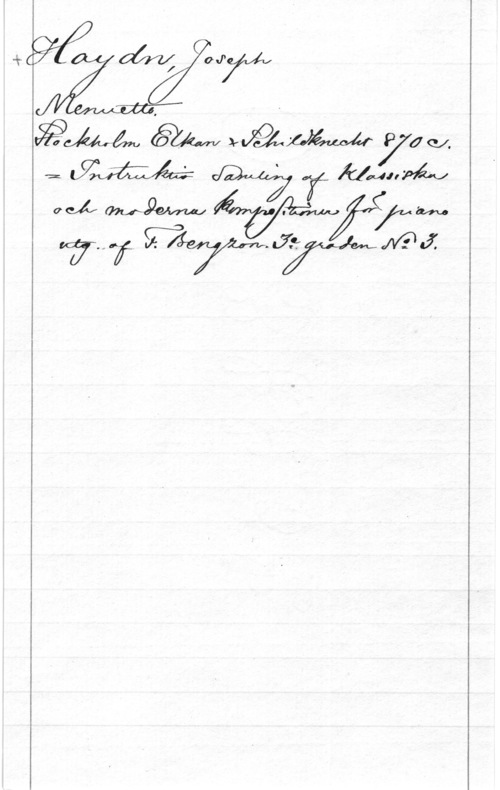 + Haydn, Joseph
Menuetto.
Stockholm Elkan & Schildknecht 870 c.
= Instruktiv Samling af Klassiska
och moderna kompositioner för piano
utg. af F. Bengzon. 3e graden No 3.